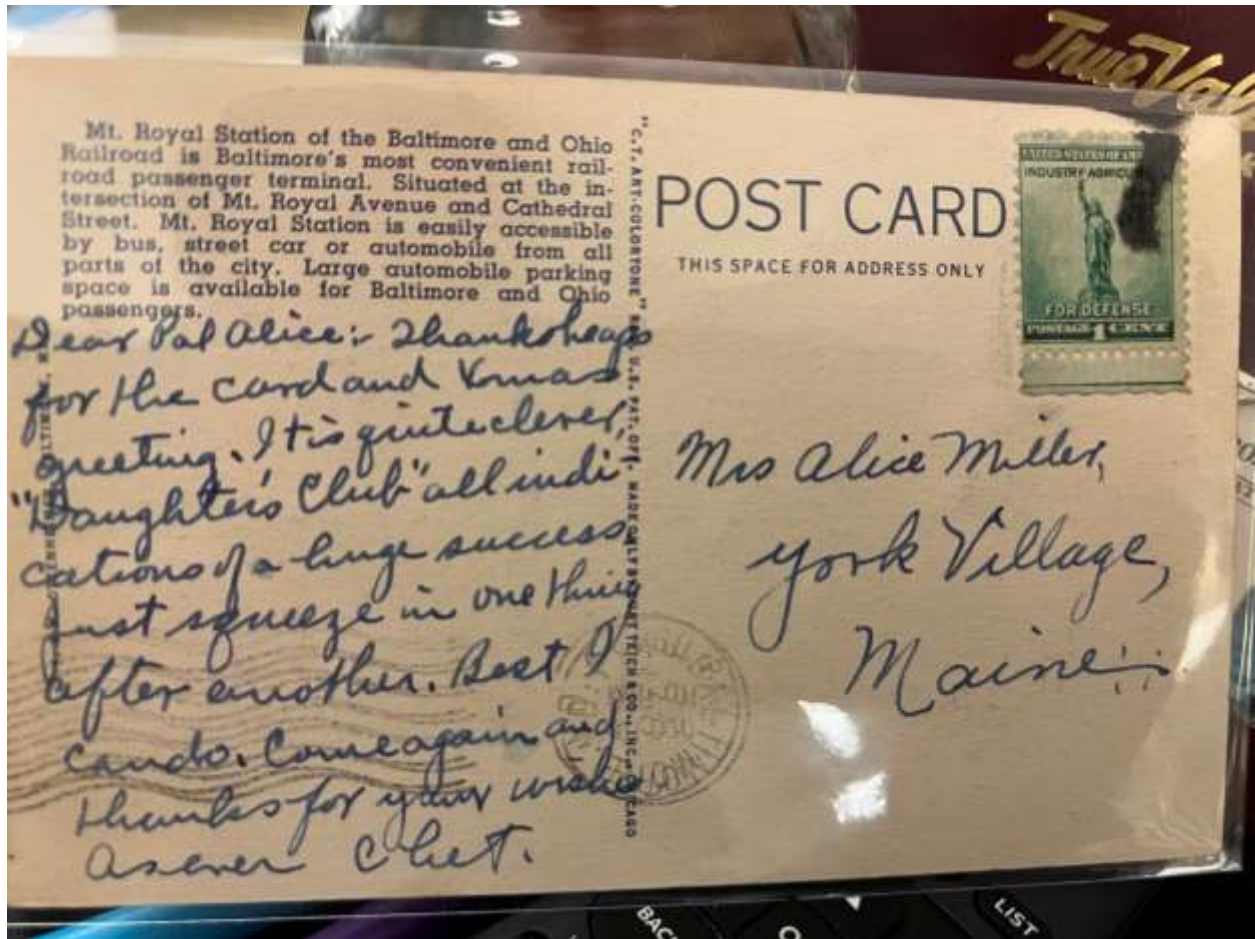 True Val
Mt. Royal Station of the Baltimore and Ohio
Railroad is Baltimore's most convenient rail-
road passenger terminal. Situated at the in-
tersection of Mt. Royal Avenue and Cathedral
Street. Mt. Royal Station is easily accessible
by bus, street car or automobile from all
parts of the city. Large automobile parking
space is available for Baltimore and Ohio
passengers.
Dear Pal Alice:- Thanks heaps
for the card and Xmas
greeting. It is quite clever,
"Daughter's Club" all indi-
cations of a huge success
Just squeeze in one thing
after another. Best I
can do. Come again and
thanks for your wishes
As ever Chet.
"C.T. ART-COLORTONE" REG. U.S. PAT. OFF. MADE ONLY BY CURT TEICH & CO., INC., CHICAGO
POST CARD
THIS SPACE FOR ADDRESS ONLY
UNITED STATES OF AM
INDUSTRY AGRICU
FOR DEFENSE
POSTAGE 1 CENT
Mrs Alice Miller,
York Village,
Maine
BAC
LIST